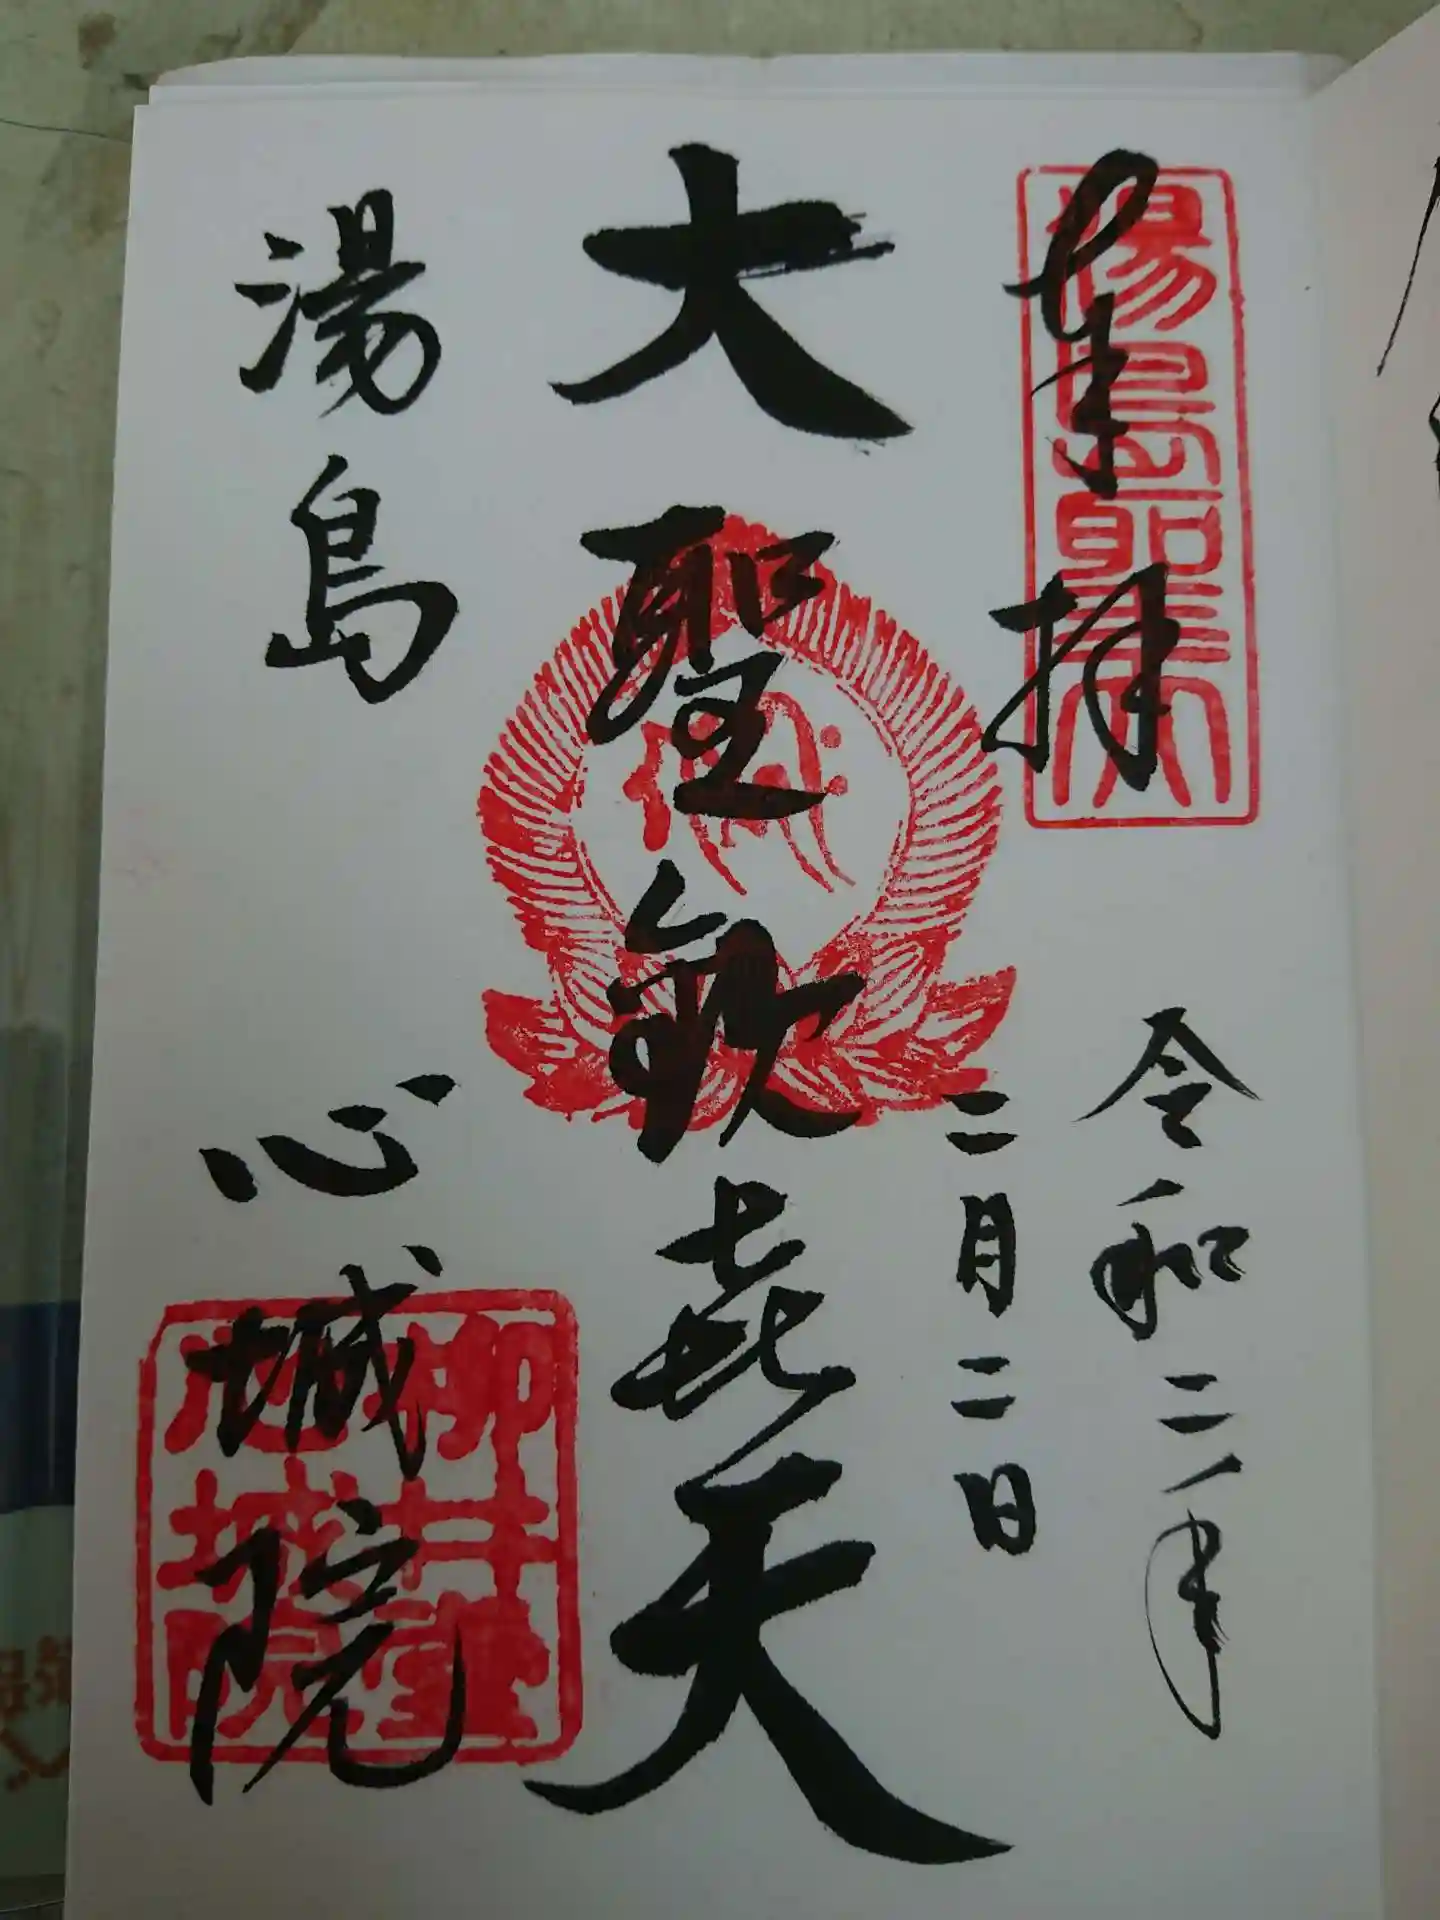 奉拝
湯島聖天
令和二年
二月二日
大聖歓喜天
湯島 心城院
柳井堂
心城院